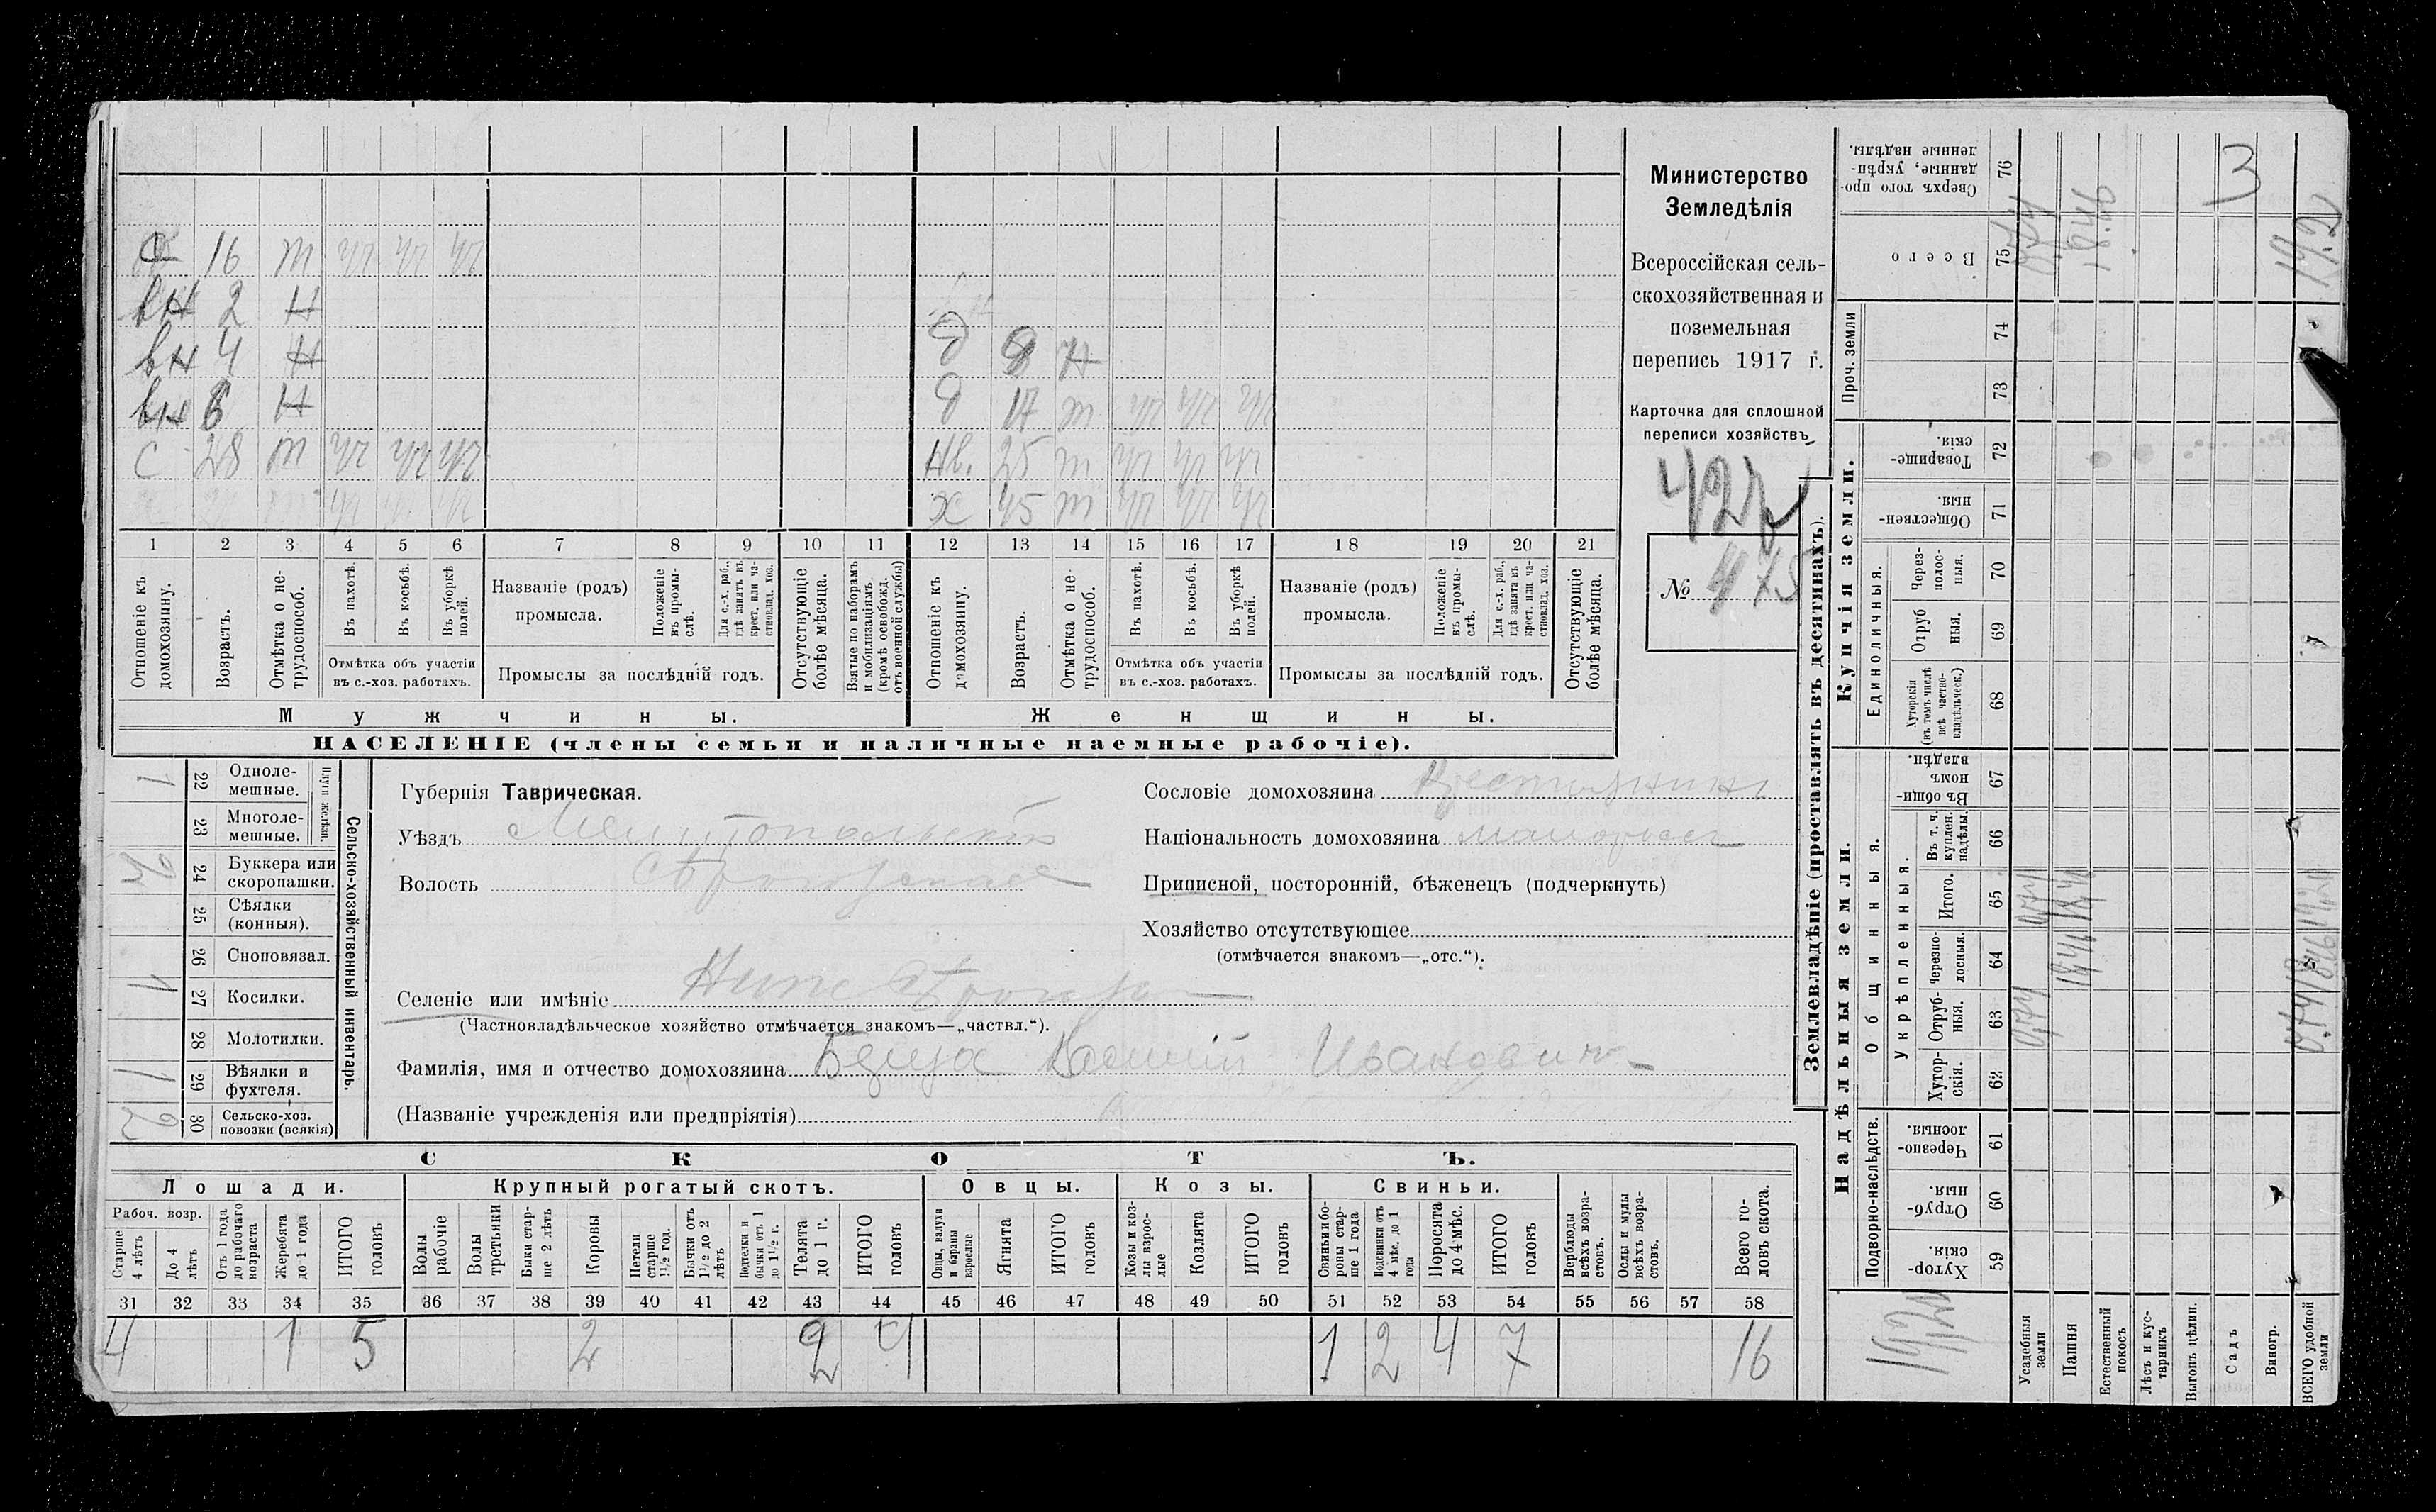 С 16 т уч уч уч
вн 2 н
вн 4 н
д 9 н
вн 6 н
д 17 т уч уч уч
с 28 т уч уч уч
нв. 25 т уч уч уч
х 45 т уч уч уч
1 2 3 4 5 6 7 8 9 10 11 12 13 14 15 16 17 18 19 20 21
Отношеніе къ домохозяину.
Возрастъ.
Отмѣтка о нетрудоспособ.
Въ пахотѣ.
Въ косьбѣ.
Въ уборкѣ полей.
Отмѣтка объ участіи
въ с.-хоз. работахъ.
Названіе (родъ)
промысла.
Положеніе въ промыслѣ.
Для с.-х. раб., гдѣ занятъ въ крест. или частновлад. хоз.
Промыслы за послѣдній годъ.
Отсутствующіе болѣе мѣсяца.
Взятые по наборамъ и мобилизаціямъ (кромѣ освобожд. отъ военной службы)
Отношеніе къ домохозяину.
Возрастъ.
Отмѣтка о нетрудоспособ.
Въ пахотѣ.
Въ косьбѣ.
Въ уборкѣ полей.
Отмѣтка объ участіи
въ с.-хоз. работахъ.
Названіе (родъ)
промысла.
Положеніе въ промыслѣ.
Для с.-х. раб., гдѣ занята въ крест. или частновлад. хоз.
Промыслы за послѣдній годъ.
Отсутствующіе болѣе мѣсяца.
Мужчины.
Женщины.
НАСЕЛЕНІЕ (члены семьи и наличные наемные рабочіе).
Министерство
Земледѣлія
Всероссійская сель-
скохозяйственная и
поземельная
перепись 1917 г.
Карточка для сплошной
переписи хозяйствъ
427
№ 475
Сельско-хозяйственный инвентарь.
Плуги желѣзн.
22 Одноле-
мешные. 1
23 Многоле-
мешные.
24 Буккера или
скоропашки.
25 Сѣялки
(конныя).
26 Сноповязал.
27 Косилки. 1
28 Молотилки.
29 Вѣялки и
фухтеля. 1
30 Сельско-хоз.
повозки (всякія) 2
Губернія Таврическая.
Уѣздъ Мелитопольскій
Волость
Селеніе или имѣніе
(Частновладѣльческое хозяйство отмѣчается знакомъ—„частвл.“).
Фамилія, имя и отчество домохозяина Иванович
(Названіе учрежденія или предпріятія)
Сословіе домохозяина
Національность домохозяина
Приписной, посторонній, бѣженецъ (подчеркнуть)
Хозяйство отсутствующее
(отмѣчается знакомъ—„отс.“).
СКОТЪ.
Лошади.
Рабоч. возр.
Старше 4 лѣтъ
До 4 лѣтъ
Отъ 1 года до рабочаго возраста
Жеребята до 1 года
ИТОГО головъ
Крупный рогатый скотъ.
Волы рабочіе
Волы третьяки
Быки старше 2 лѣтъ
Коровы
Нетели старше 1 1/2 год.
Бычки отъ 1 1/2 до 2 лѣтъ
Подтелки и бычки отъ 1 до 1 1/2 г.
Телята до 1 г.
ИТОГО головъ
Овцы.
Овцы, валухи и бараны взрослые
Ягнята
ИТОГО головъ
Козы.
Козы и козлы взрослые
Козлята
ИТОГО головъ
Свиньи.
Свиньи и боровы старше 1 года
Подсвинки отъ 4 мѣс. до 1 года
Поросята до 4 мѣс.
ИТОГО головъ
Верблюды всѣхъ возрастовъ.
Ослы и мулы всѣхъ возрастовъ.
Всего головъ скота.
31 32 33 34 35 36 37 38 39 40 41 42 43 44 45 46 47 48 49 50 51 52 53 54 55 56 57 58
4 1 5 2 2 4 1 2 4 7 16
Землевладѣніе (проставлять въ десятинахъ).
Надѣльныя земли.
Подворно-наслѣдств.
Хуторскія. 59
Отрубныя. 60
Черезполосныя. 61
Общинныя.
Укрѣпленныя.
Хуторскія. 62
Отрубныя. 63
Черезполосныя. 64
Итого. 65
Въ т. ч. куплен. надѣлы. 66
Въ общинномъ владѣн. 67
Купчія земли.
Единоличныя.
Хуторскія (въ томъ числѣ всѣ частновладѣльческ.) 68
Отрубныя. 69
Черезполосныя. 70
Общественныя. 71
Товарищескія. 72
Проч. земли
73
74
Всего 75
Сверхъ того проданные, укрѣпленные надѣлы. 76
Усадебныя земли
Пашня
Естественный покосъ
Лѣсъ и кустарникъ
Выгонъ цѣлин.
Садъ
Виногр.
ВСЕГО удобной земли
3